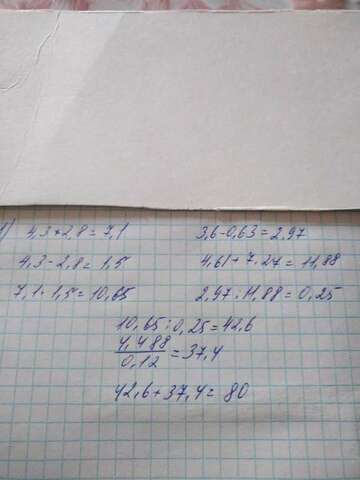 1) 4,3+2,8=7,1
3,6-0,63=2,97
4,3-2,8=1,5
4,61+7,27=11,88
7,1·1,5=10,65
2,97:11,88=0,25
10,65:0,25=42,6
4,488
0,12 =37,4
42,6+37,4=80